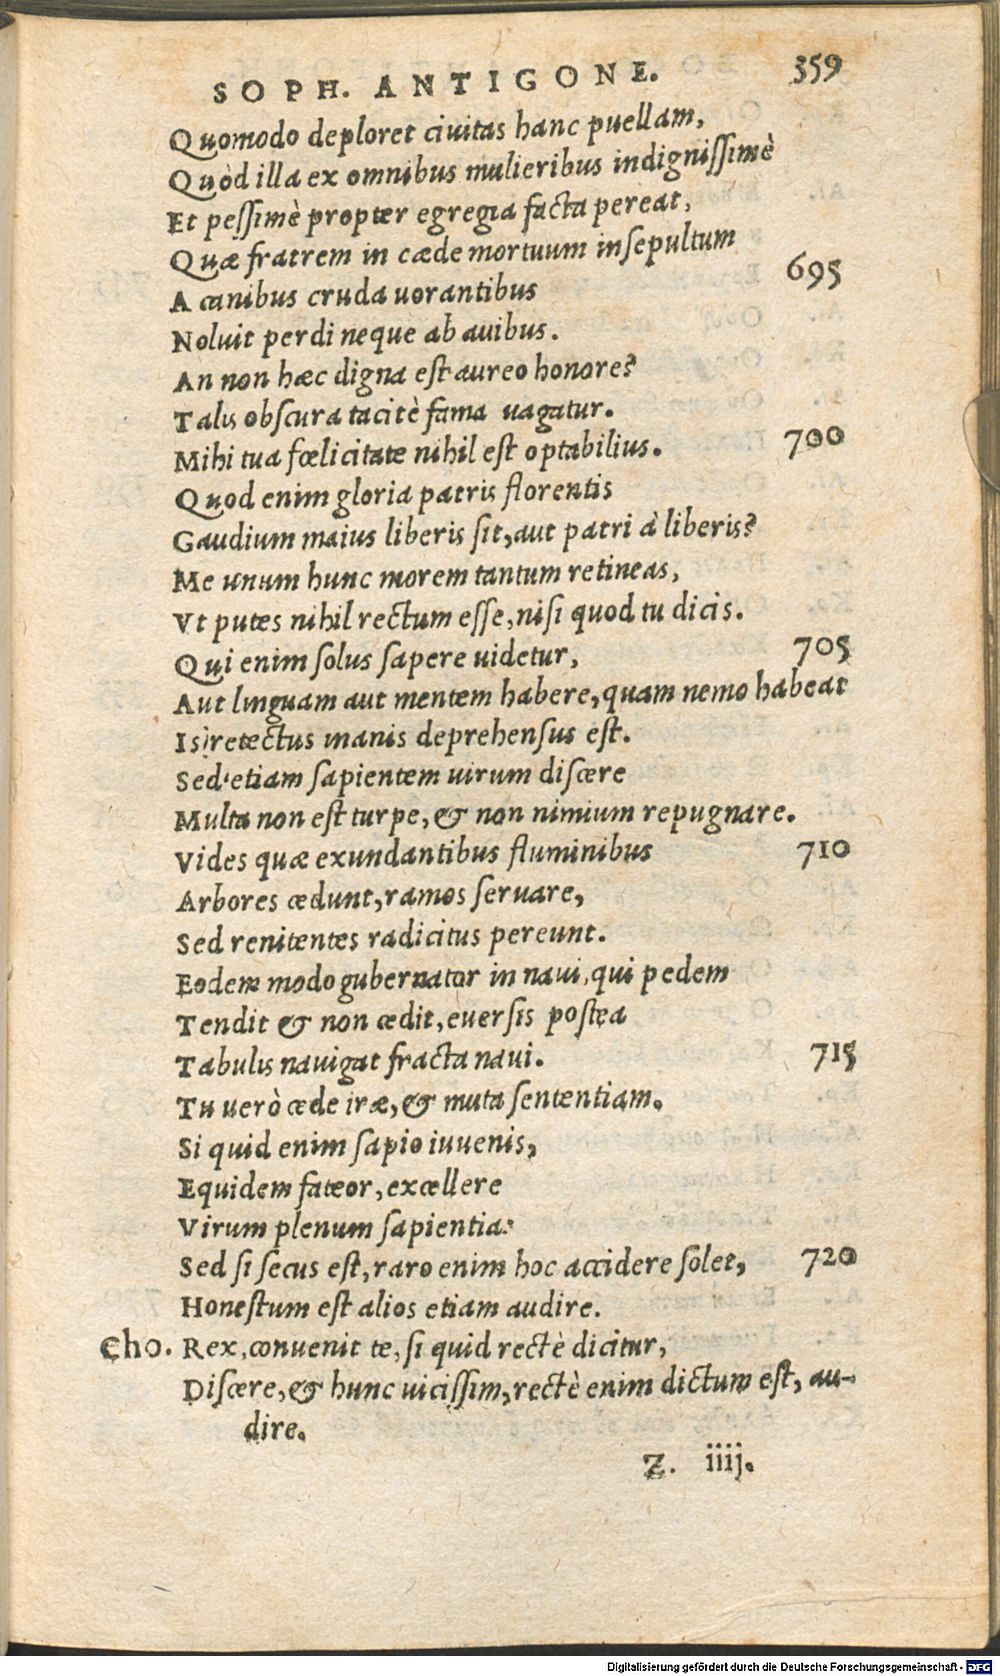 SOPH. ANTIGONE. 359
Quomodo deploret ciuitas hanc puellam,
Quòd illa ex omnibus mulieribus indignißimè
Et peßimè propter egregia facta pereat,
Quæ fratrem in cæde mortuum insepultum
A canibus cruda uorantibus 695
Noluit perdi neque ab auibus.
An non hæc digna est aureo honore?
Talis obscura tacitè fama uagatur.
Mihi tua fœlicitate nihil est optabilius. 700
Quod enim gloria patris florentis
Gaudium maius liberis sit, aut patri à liberis?
Me unum hunc morem tantum retineas,
Vt putes nihil rectum esse, nisi quod tu dicis.
Qui enim solus sapere uidetur, 705
Aut linguam aut mentem habere, quam nemo habeat
Is retectus inanis deprehensus est.
Sed etiam sapientem uirum discere
Multa non est turpe, & non nimium repugnare.
Vides quæ exundantibus fluminibus 710
Arbores cedunt, ramos seruare,
Sed renitentes radicitus pereunt.
Eodem modo gubernator in naui, qui pedem
Tendit & non cedit, euersis postea
Tabulis nauigat fracta naui. 715
Tu uerò cede iræ, & muta sententiam.
Si quid enim sapio iuuenis,
Equidem fateor, excellere
Virum plenum sapientia:
Sed si secus est, raro enim hoc accidere solet, 720
Honestum est alios etiam audire.
Cho. Rex, conuenit te, si quid rectè dicitur,
Discere, & hunc uicißim, rectè enim dictum est, au-
dire.
Z. iiij.
Digitalisierung gefördert durch die Deutsche Forschungsgemeinschaft - DFG